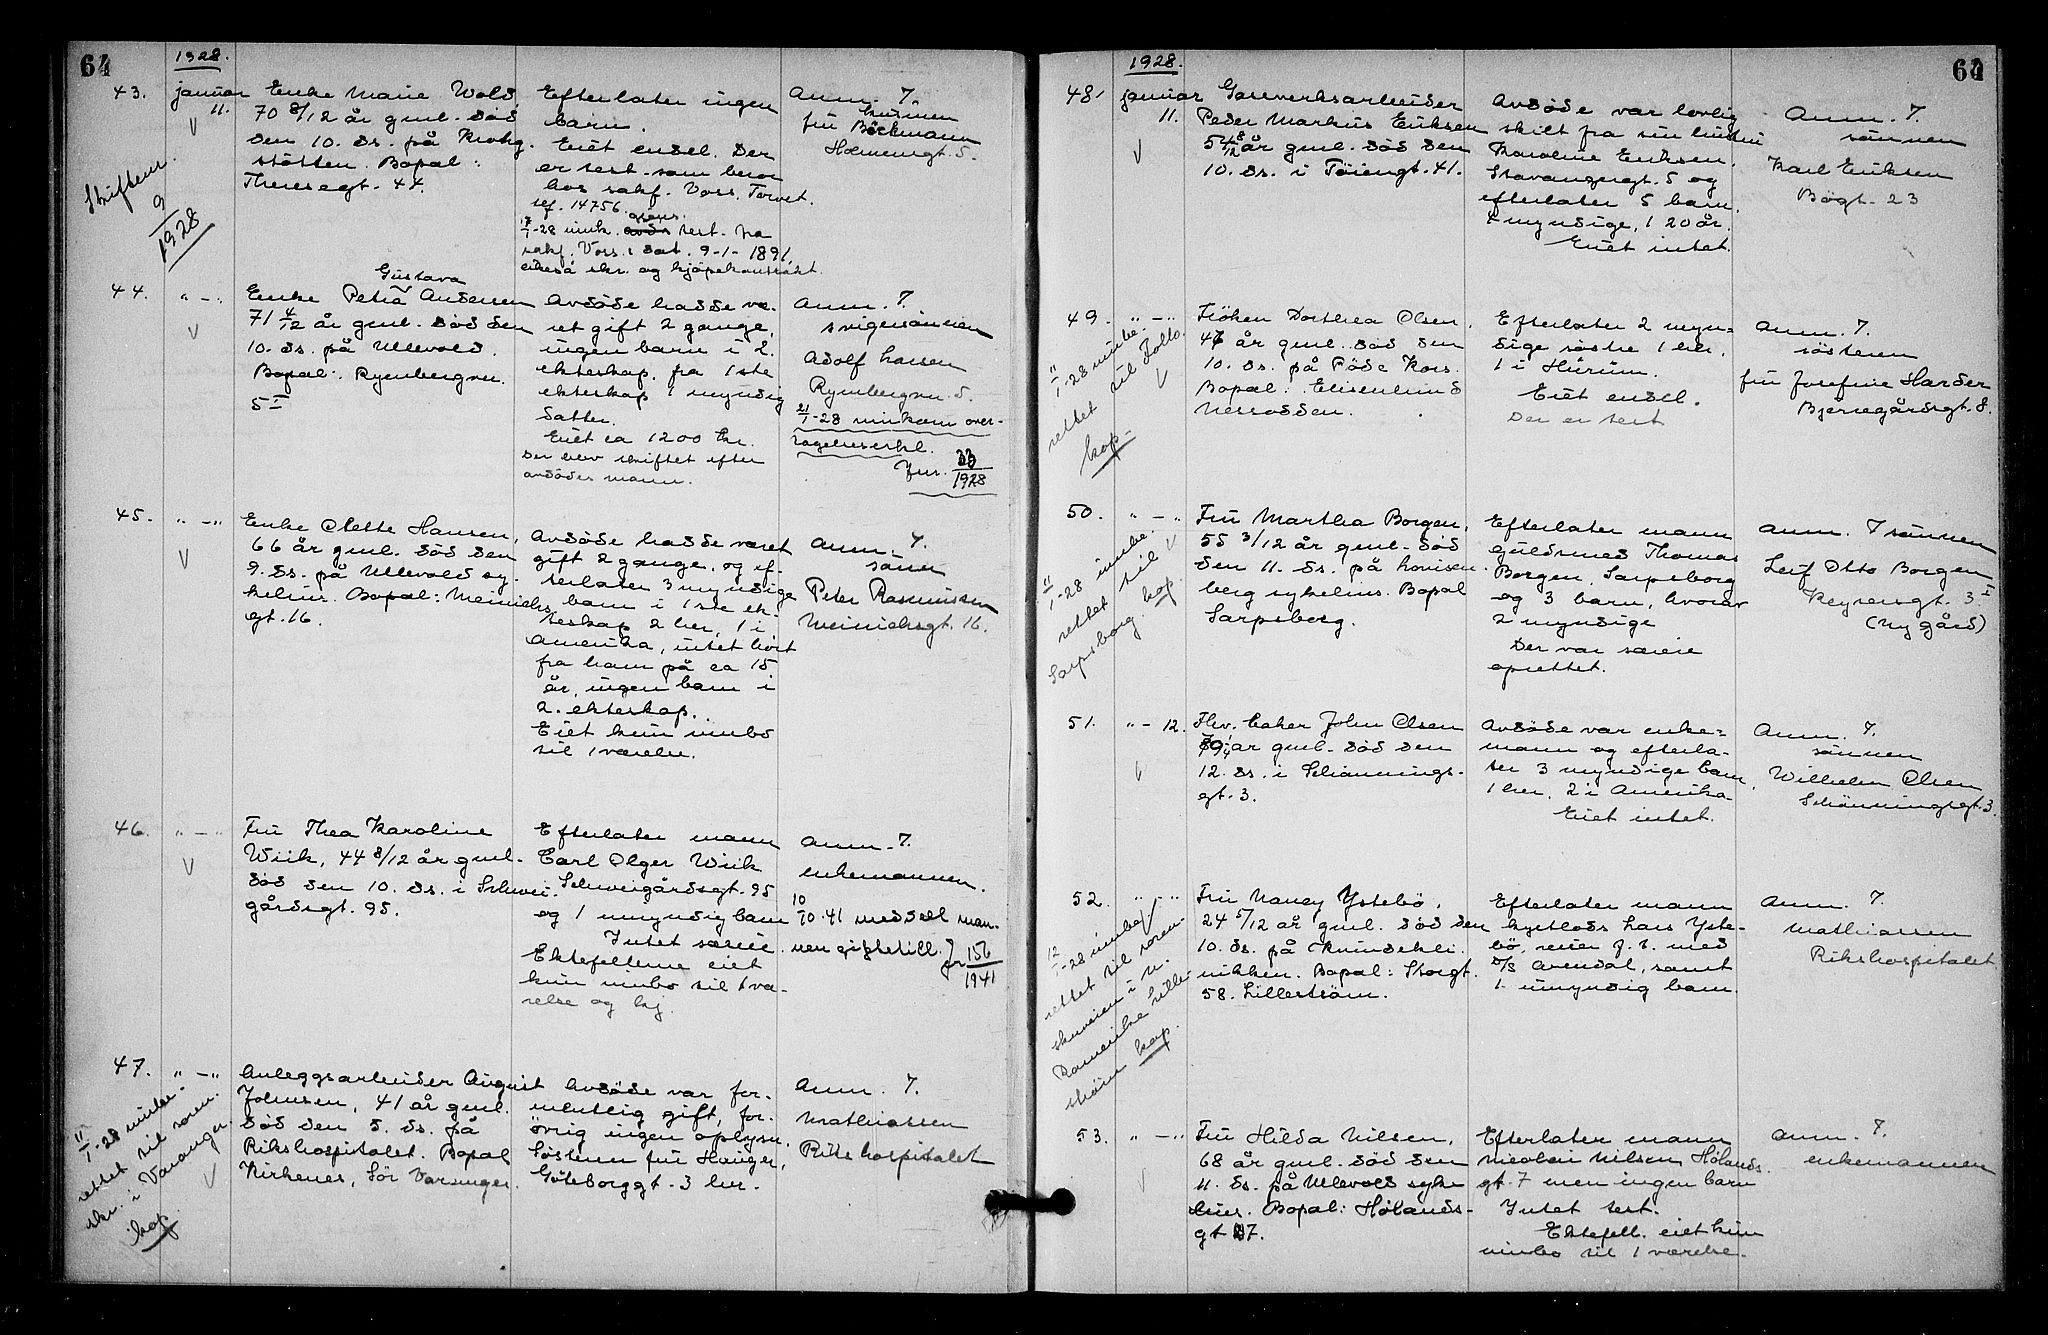 64
1928.
43.
januar
11.
Enke Marie Wold,
70 8/12 år gml. død
den 10. ds. på Krohg-
støtten. Bopæl:
Theresegt. 44.
Efterlater ingen
barn.
Eiet endel. Der
er test. som beror
hos sakf. Voss. Torvet.
tlf. 14756.
17/1-28 innk. gjens. test. fra
sakf. Voss. dat. 9-1-1891,
likeså skr. og kjøpekontrakt.
Anm. 7.
kusinen
fru Böckmann
Holmensgt. 5.
Skiftenr.
9/1928
44.
"-"
Enke Petra Gustava Andersen
71 4/12 år gml. død den
10. ds. på Ullevold.
Bopal: Rymbergvn.
5 I
Avdøde hadde væ-
ret gift 2 gange,
ingen barn i 2.
ekteskap. fra 1ste
ekteskap 1 myndig
datter.
Eiet ca 1200 kr.
Der blev skiftet efter
avdødes mann.
Anm. 7.
svigersønnen
Adolf Larsen
Rymbergvn. 5.
21/1-28 innkom over-
tagelseserkl.
Jnr. 33/1928
45.
"-"
Enke Olette Hansen,
66 år gml. død den
9. ds. på Ullevold sy-
kehus. Bopal: Meinichs
gt. 16.
Avdøde hadde været
gift 2 gange, og ef-
terlater 3 myndige
barn i 1ste ek-
teskap 2 her, 1 i
Amerika, intet hørt
fra ham på ca 15
år, ingen barn i
2. ekteskap.
Eiet kun innbo
til 1 værelse.
Anm. 7.
sønn
Peter Rasmussen
Meinichsgt. 16.
46.
"-"
Fru Thea Karoline
Wiik, 44 8/12 år gml.
død den 10. ds. i Schwei-
gårdsgt. 95.
Efterlater mann
Carl Olger Wiik
Schweigårdsgt. 95
og 1 umyndig barn
Intet særeie.
Ektefellene eiet
kun innbo til 1 væ-
relse og kj.
Anm. 7.
enkemannen.
10/10-41 meddelt man-
nen giftetill. Jnr 156/1941
47.
"-"
Anleggsarbeider August
Johnsen, 41 år gml.
død den 5. ds. på
Rikshospitalet. Bopal
Kirkenes, Sør Varanger.
Avdøde var for-
mentlig gift, for-
øvrig ingen oplysn.
Søsteren fru Hauger,
Gøteborggt. 3 her.
Anm. 7.
Mathiassen
Rikshospitalet
11/1-28 innbe-
rettet til soren-
skr. i Varanger.
kop.
1928.
48.
januar
11.
Gassverksarbeider
Peder Markus Eriksen
54 8/12 år gml. død den
10. ds. i Tøiengt. 41.
Avdøde var lovlig
skilt fra sin hustru
Karoline Eriksen,
Stavangergt. 5 og
efterlater 5 barn.
4 myndige, 1 20 år.
Eiet intet.
Anm. 7.
sønnen
Karl Eriksen
Bøgt. 23
49.
"-"
Frøken Dorthea Olsen,
47 år gml. død den
10. ds. på Røde Kors.
Bopal: Elisenlund
Nessodden.
Efterlater 2 myn-
dige søstre 1 her,
1 i Hurum.
Eiet endel.
Der er test
Anm. 7.
søsteren
fru Josefine Harder
Bjerregårdsgt. 8.
11/1-28 innbe-
rettet til Follo.
kop.
50.
"-"
Fru Martha Borgen,
55 3/12 år gml. død
den 11. ds. på Lovisen-
berg sykehus. Bopal
Sarpsborg.
Efterlater mann
guldsmed Thomas
Borgen, Sarpsborg
og 3 barn, hvorav
2 myndige
Der var særeie
oprettet.
Anm. 7 sønnen
Leif Otto Borgen
Keysersgt. 3 I
(Ny gård)
11/1-28 innbe-
rettet til
Sarpsborg. kop.
51.
"-12.
Fhv. baker John Olsen
år gml. død den
12. ds. i Schønnings-
gt. 3.
Avdøde var enke-
mann og efterla-
ter 3 myndige barn,
1 her, 2 i Amerika
Eiet intet.
Anm. 7.
sønnen
Wilhelm Olsen
Schønningsgt. 3.
52.
"-"
Fru Nancy Ystebø,
24 5/12 år gml. død den
10. ds. på Kvindekli-
nikken. Bopal: Storgt.
58. Lillestrøm.
Efterlater mann
kystlods Lars Yste-
bø, reiser f. t. med
D/S Arendal, samt
1 umyndig barn.
Anm. 7.
Mathiassen
Rikshospitalet
12/1-28 innbe-
rettet til soren-
skriveren i N.
Romerike Lille-
strøm kop.
53.
"-"
Fru Hilda Nilsen,
68 år gml. død den
11. ds. på Ullevold syke
hus. Bopal: Hølands-
gt 7.
Efterlater mann
Nicolai Nilsen Hølands-
gt. 7 men ingen barn
Intet test.
Ektefell. eiet kun
innbo til 1 værelse.
Anm. 7.
enkemannen